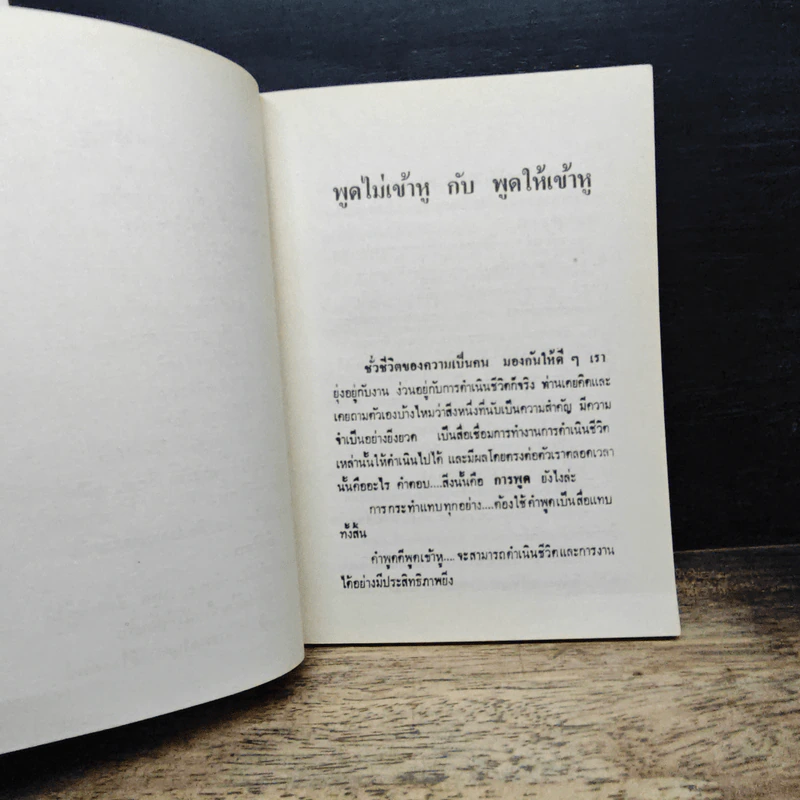 พูดไม่เข้าหู กับ พูดให้เข้าหู
ชั่วชีวิตของความเป็นคน มองกันให้ดี ๆ เรา
ยุ่งอยู่กับงาน ง่วนอยู่กับการดำเนินชีวิตก็จริง ท่านเคยคิดและ
เคยถามตัวเองบ้างไหมว่าสิ่งหนึ่งที่นับเป็นความสำคัญ มีความ
จำเป็นอย่างยิ่งยวด เป็นสื่อเชื่อมการทำงานการดำเนินชีวิต
เหล่านั้นให้ดำเนินไปได้ และมีผลโดยตรงต่อตัวเราตลอดเวลา
นั้นคืออะไร คำตอบ....สิ่งนั้นคือ การพูด ยังไงล่ะ
การกระทำแทบทุกอย่าง....ต้องใช้คำพูดเป็นสื่อแทบ
ทั้งสิ้น
คำพูดดีพูดเข้าหู....จะสามารถดำเนินชีวิตและการงาน
ได้อย่างมีประสิทธิภาพยิ่ง